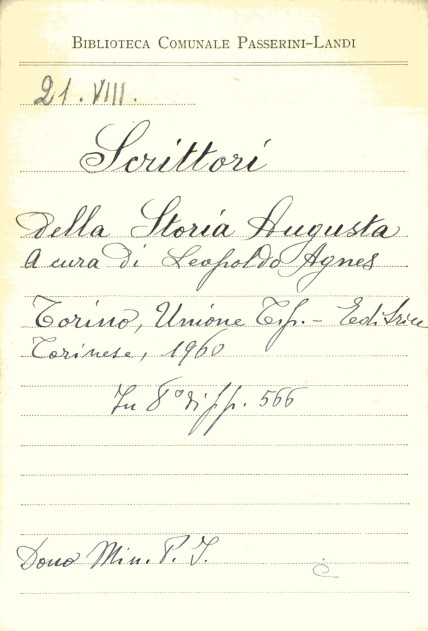 BIBLIOTECA COMUNALE PASSERINI-LANDI
21. VIII.
Scrittori
della Storia Augusta
A cura di Leopoldo Agnes
Torino, Unione Tip. - Editrice
Torinese, 1960
In 8° di pp. 566
Dono Min. P. I.
c